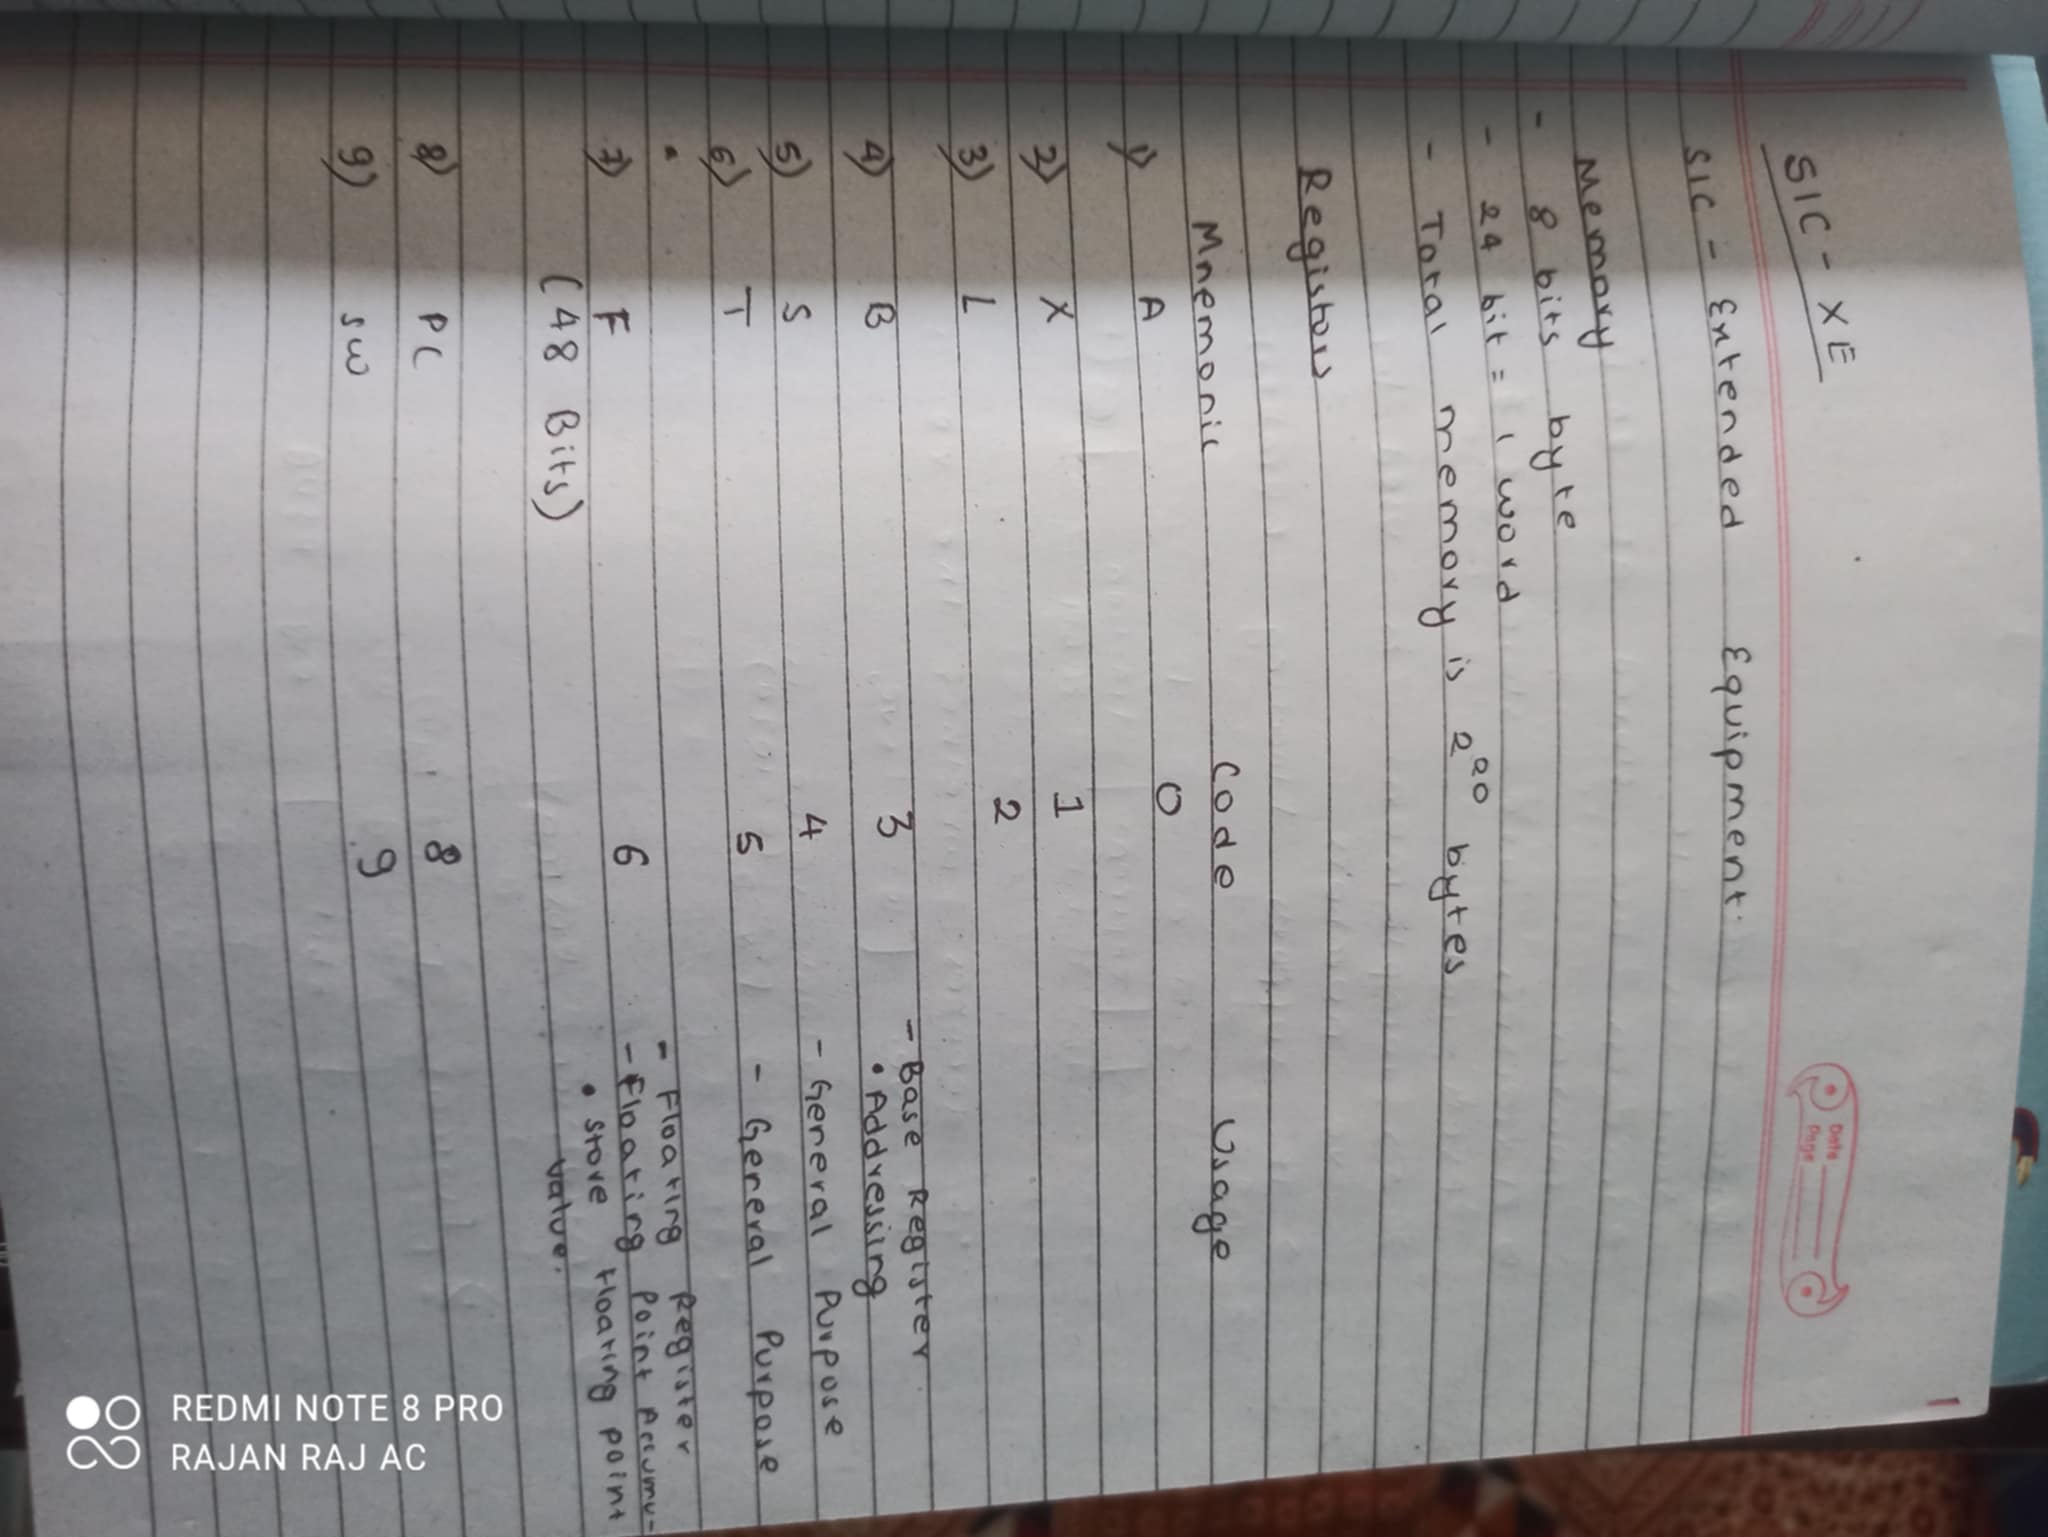 1
SIC - XE
Date
Page
SIC - Extended Equipment.
Memory
- 8 bits byte
- 24 bit = 1 word
- Total memory is 2^20 bytes
Registors
Mnemonic Code Usage
1) A 0
2) X 1
3) L 2
4) B 3 - Base Register
• Addressing
5) S 4 - General Purpose
6) T 5 - General Purpose
- Floating Register
7) F 6 - Floating Point Accumu-
(48 Bits) • store floating point
value.
8) PC 8
9) SW 9
REDMI NOTE 8 PRO
RAJAN RAJ AC